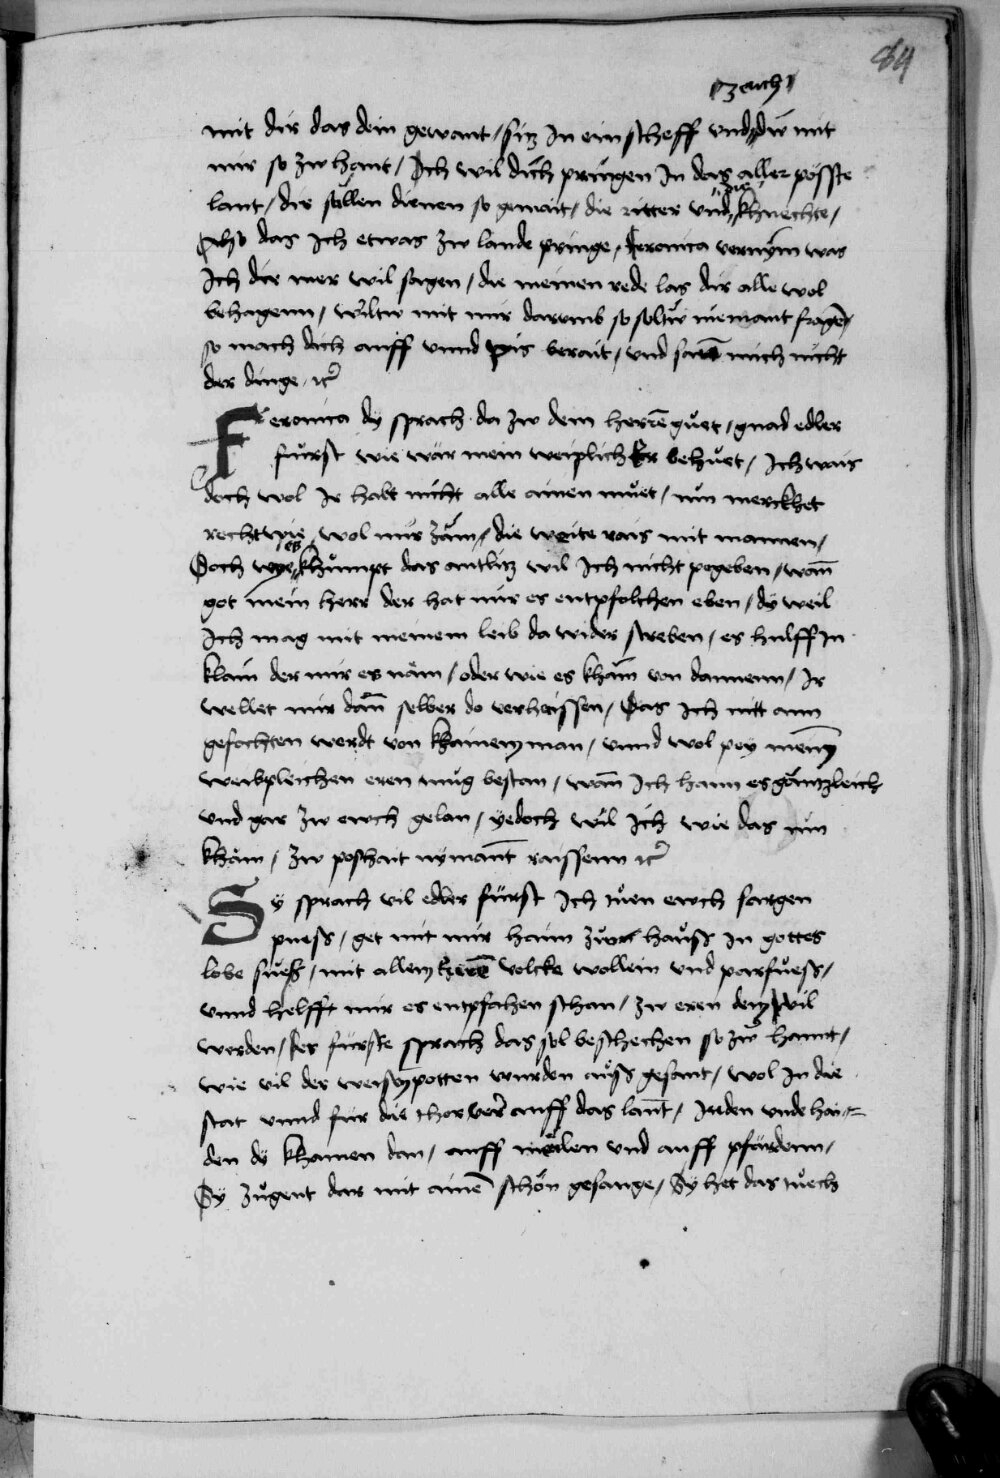 84
zeuch
mit dir das dein gewant / sitz In ein scheff vnd dw mit
mir so zw hant / Ich wil dich pringen In das aller pösste
lant / dir süllen dienen so gemait / die ritter vnd die khnechte /
Also das Ich etwas zw lande pringe / feronica vernÿm was
Ich dir mer wil sagen / die meinen rede las dir alle wol
behagenn / wiltw mit mir darumb so soltw niemant fragē /
so mach dich auff vnnd pis berait / vnd sawm mich nicht
der dinge rc
Feronica dy sprach da zw dem herrē guet / gnad edler
fürst wie wär mein weiplich Er behüet / Ich wais
doch wol Ir habt nicht alle ainen muet / nun merckhet
recht wie wol mir zäm / die weite rais mit mannen /
Doch wye es khumpt das antlitz wil Ich nicht pegeben / wañ
got mein herr der hat mir es entpfolchen eben / dÿ weil
Ich mag mit meinem leib da wider streben / es hulff In
klain der mir es näm / oder wie es kham von dannenn / Ir
wellet mir dañ selber do verhaissen / Das Ich nitt ann
gefochten werdt von khainem man / vnnd wol pey meinē
weibpleichen eren mug bestan / wañ Ich hann es gäntzleich
vnd gar zw ewch gelan / yedoch wil Ich wie das nün
kham / zw poshait nÿmant raissenn rc
Sy sprach vil edler fürst Ich tuen ewch sorgen
puess / get mit mir haim zuor hauss In gottes
lobe suess / mit allem Ewrē volcke wollein vnd parfuess /
vnnd helfft mir es entpfahen schan / zw eren dem wil
werden / der fürste sprach das sol beschechen so zw hannt /
wie vil der weisen potten wurden auss gesant / wol In die
stat vnnd für die thor verr auff das lant / Juden vnde hai=
den dÿ khamen dan / auff mëulen vnd auff pfärdenn /
Sÿ zugent dar mit ainē schön gesange / Sy het das tuech